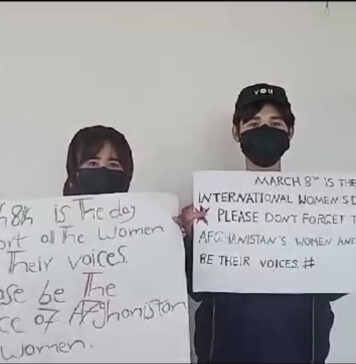 YOU
8th is The day
ort all The women
Their voices.
ase be The
ce of Afghanistan
women.
MARCH 8TH IS THE
INTERNATIONAL WOMEN'S D
PLEASE DON'T FORGET T
AFGHANISTAN'S WOMEN AND
BE THEIR VOICES.#